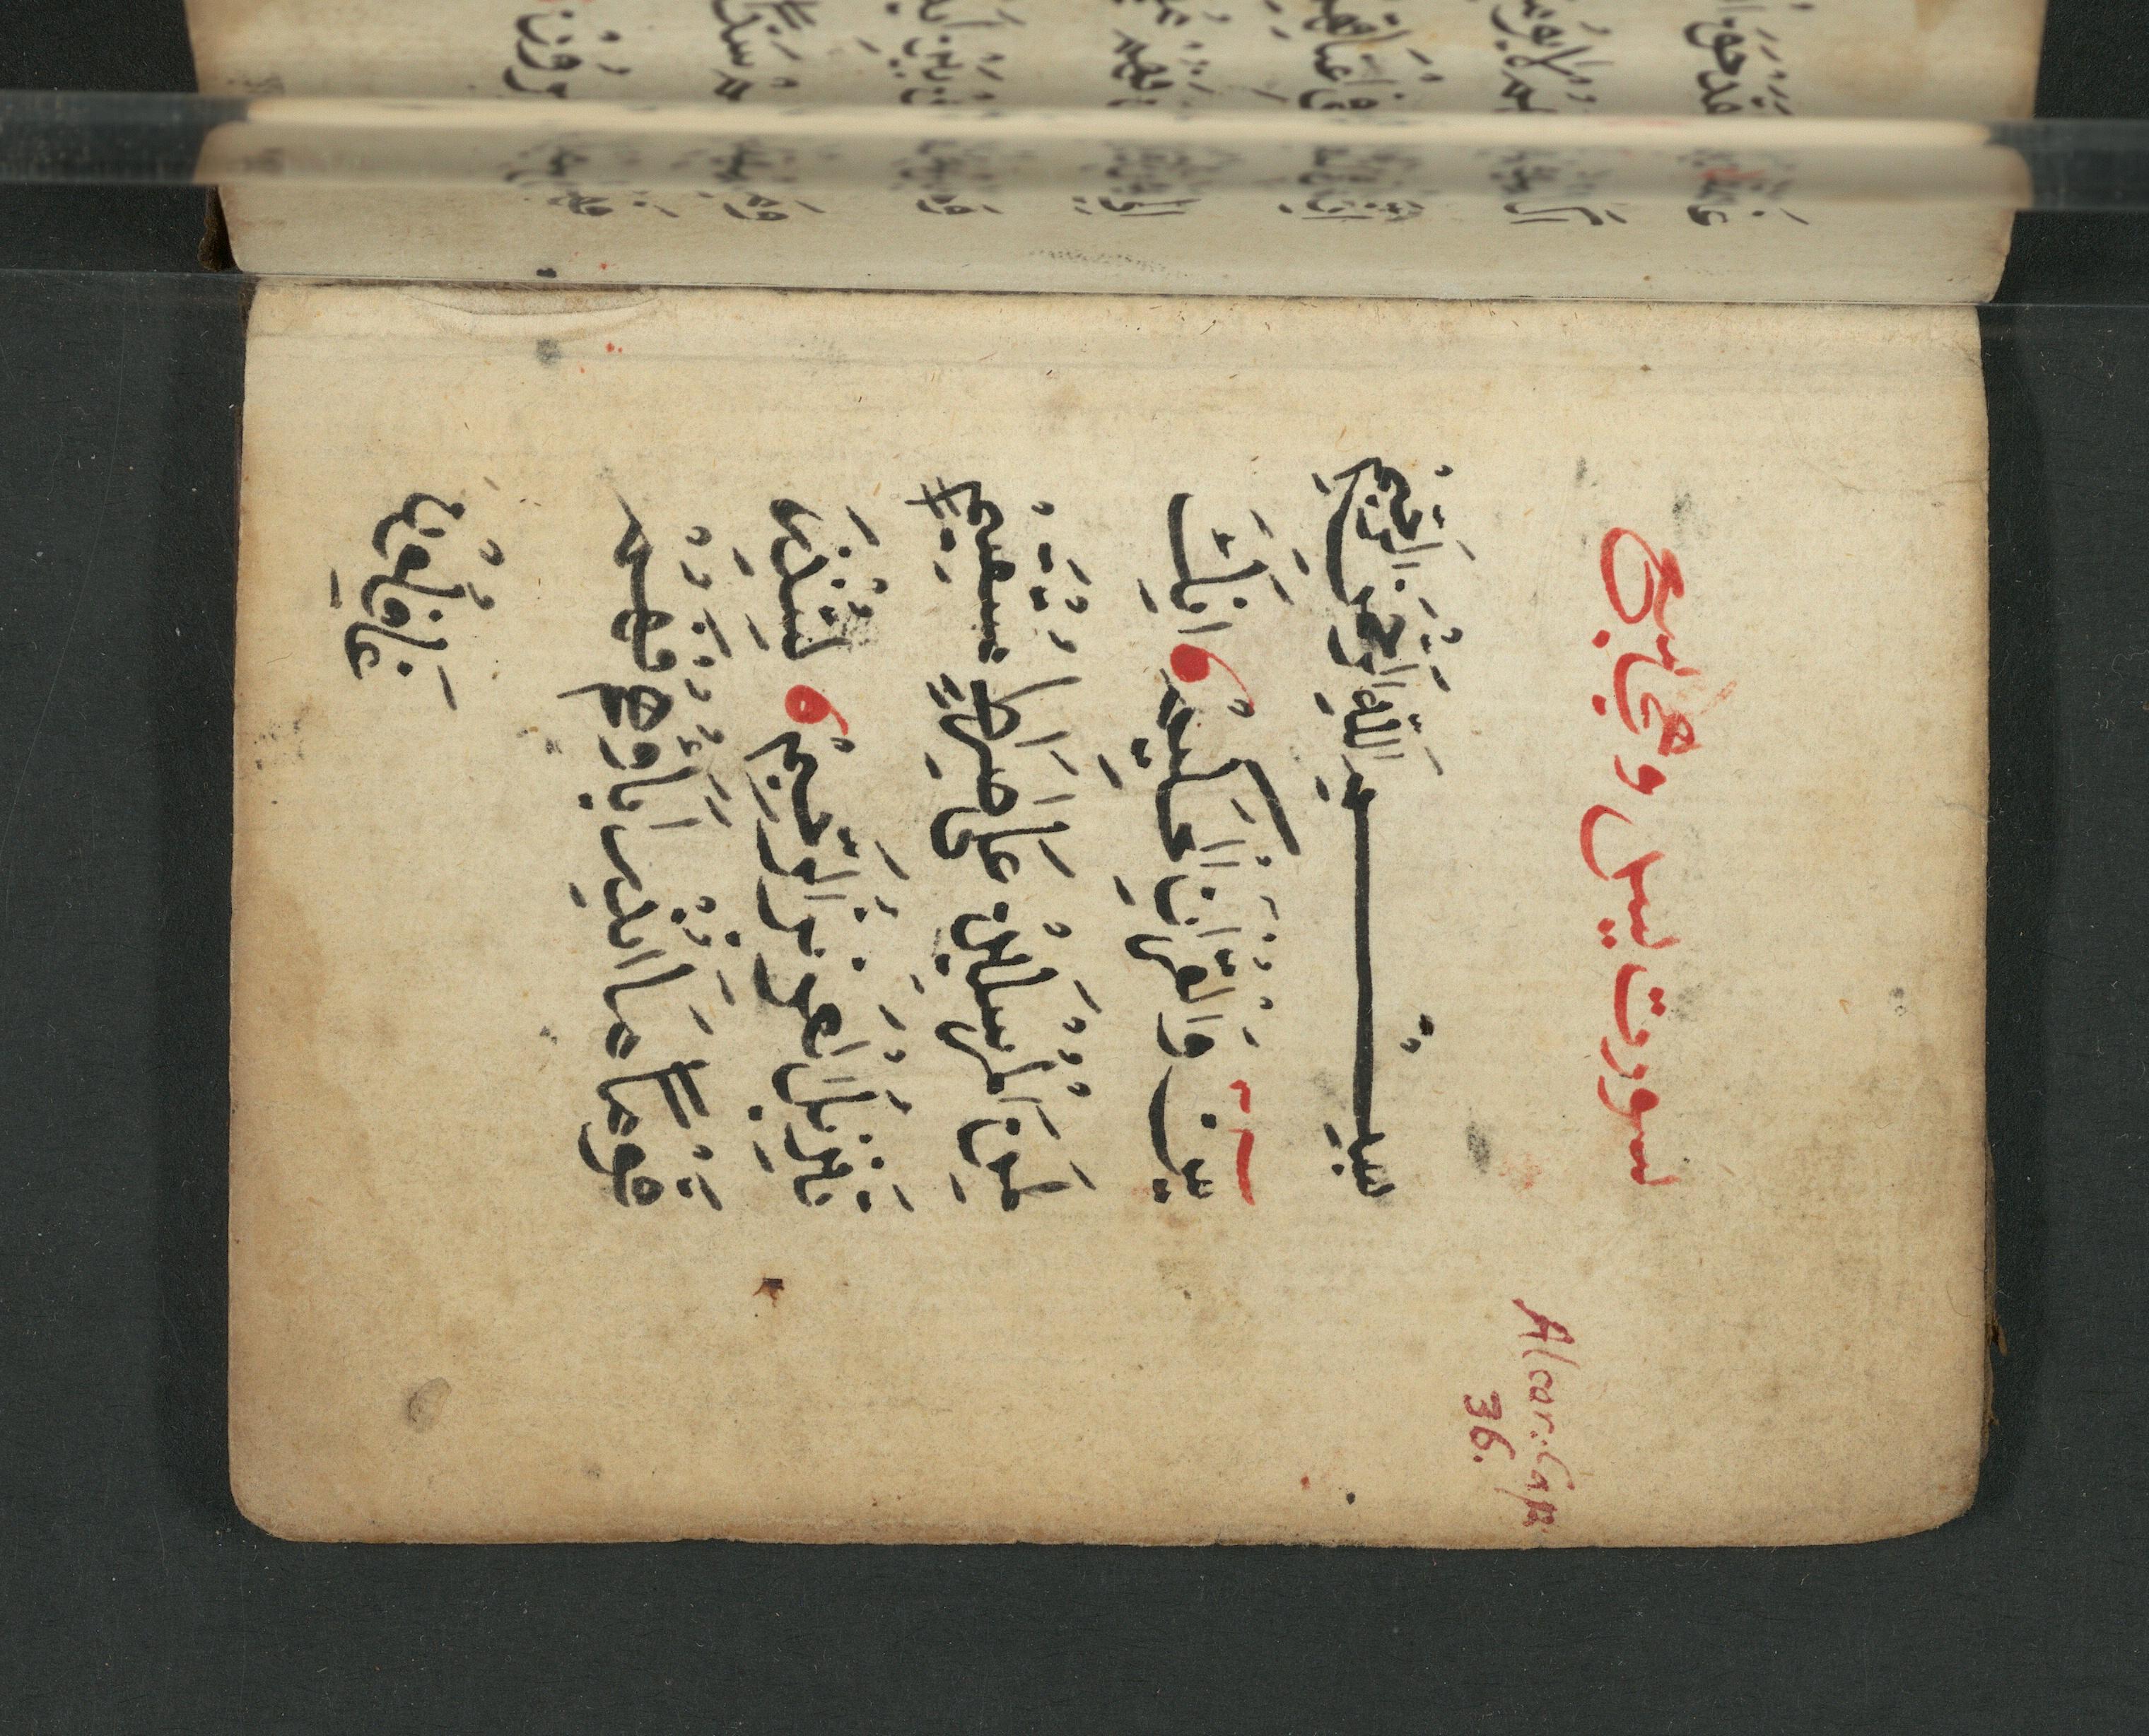 سورت يس وعجايب
Alcor: Cap
36.
بسم اللّه الرحمن الرحيم
يس والقرآن الحكيم انك
لمن المرسلين على صراط مستقيم
تنزيل العزيز الرحيم لتنذر
قوما ما انذر اباؤهم فهم
غافلون